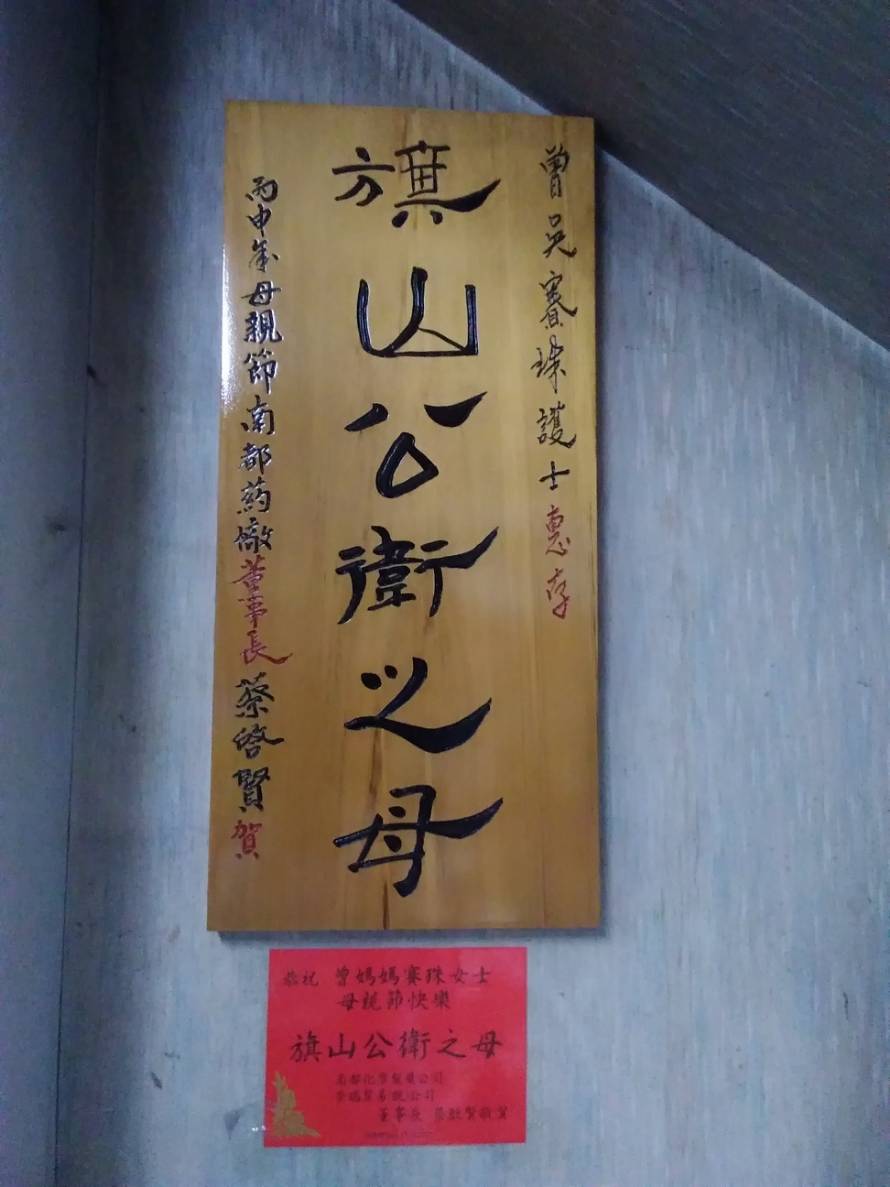 曾吳賽珠護士惠存
旗山公衛之母
丙申年母親節南都药廠董事長蔡啓賢賀
恭祝 曾媽媽賽珠女士
母親節快樂
旗山公衛之母
南都化學製藥公司
貿易股公司
董事長 蔡啟賢敬賀